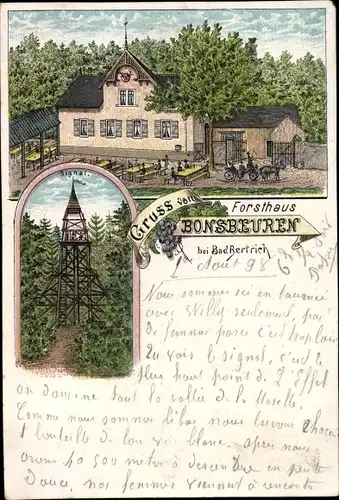 Signal.
Gruss vom
Forsthaus
BONSBEUREN
bei Bad Bertrich
1 Aout 98
Nous sommes ici en tournée
avec Willy seulement, pas
de femmes parce c'est trop loin
Tu vois le signal, c'est le
plus haut point de L'Eifel
on domine tout la vallée de la Moselle.
Comme nous sommes là bas nous buvons chacun
1 bouteille de bon vin blanc. après nous
avons 4 0 500 mètres à descendre en pente
douce, nos femmes viennent à rencontre